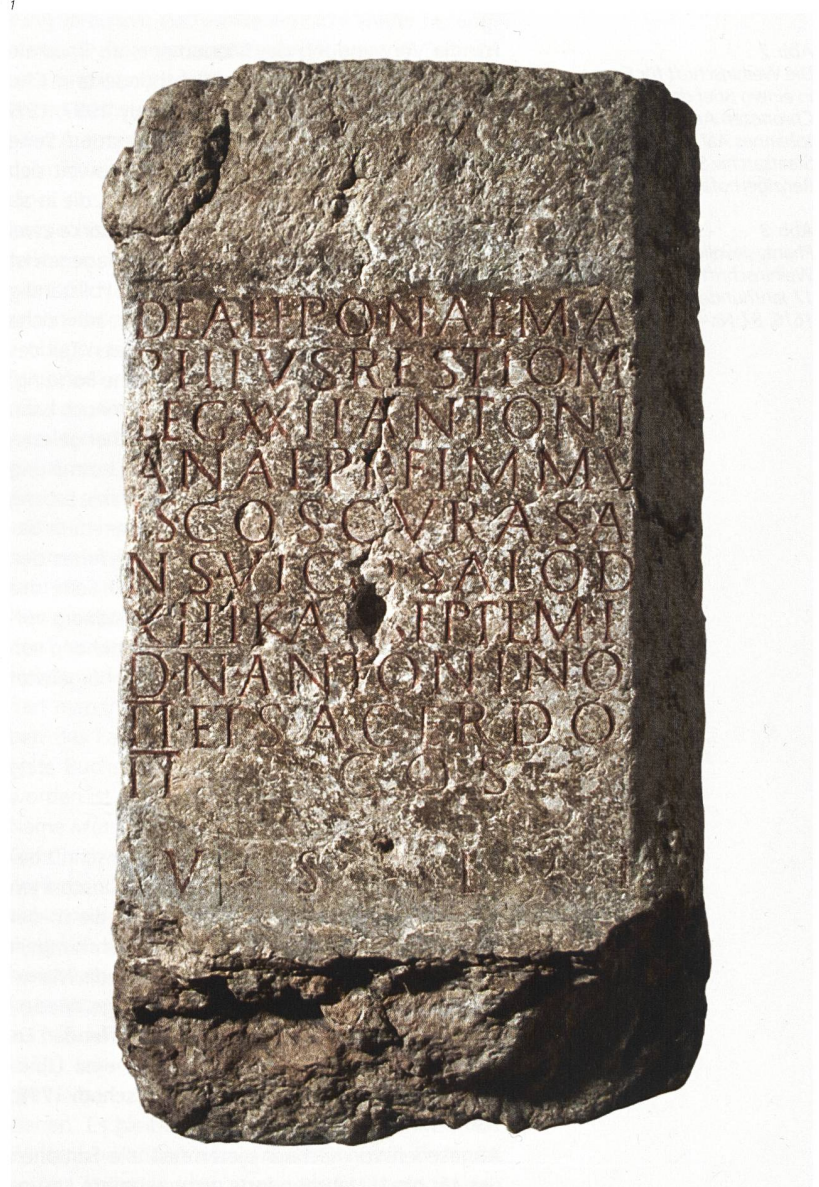 1
DEAE EPONAE MA
PILIVS RESTIO M
LEG XXII ANTONI
ANAE P P F IMMV
IS COS CVRAS A
NS VIC SALOD
XIIII KA EPTEM
D N ANTONINO
II ET SACERDO
II COS
V S L